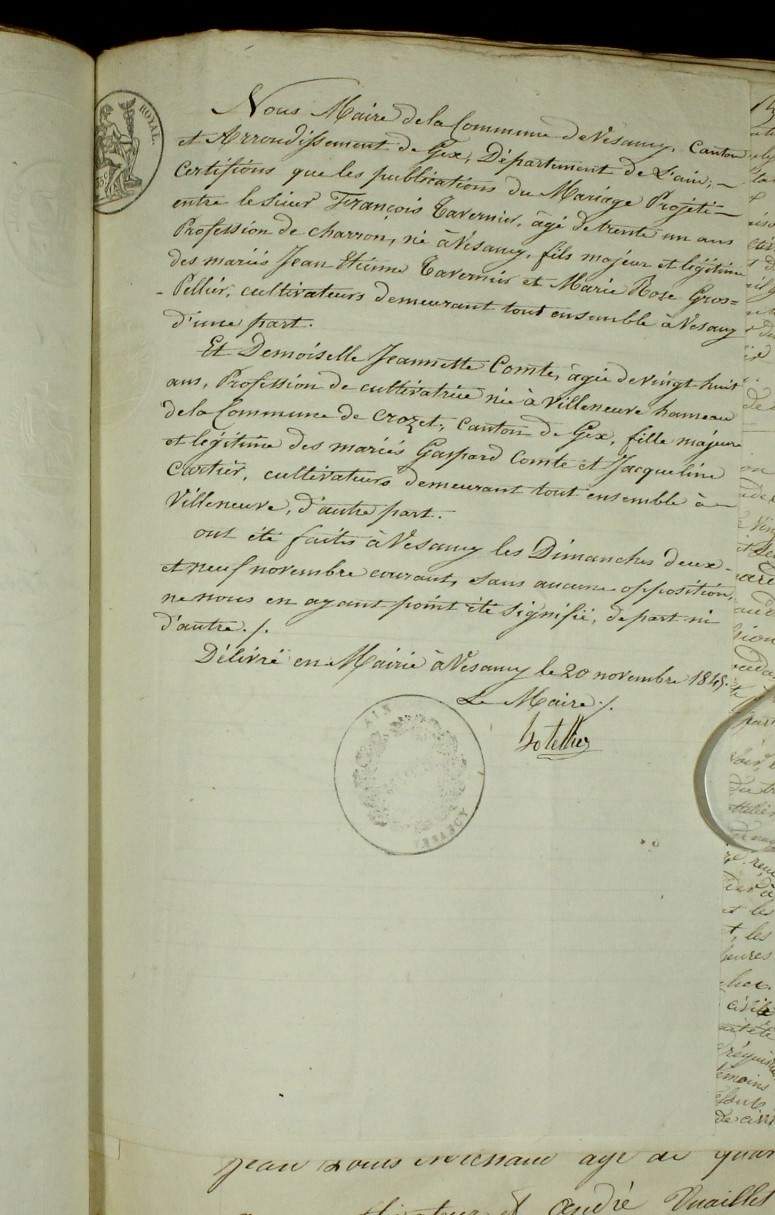 ROYAL.
Nous Maire de la Commune de Vesancy, Canton
et Arrondissement de Gex, Département de l'ain, –
Certifions que les publications du Mariage Projeté –
entre le sieur François Tavernier, âgé de trente un ans
Profession de charron, né à Vesancy, fils majeur et légitime
des mariés Jean Etienne Tavernier et Marie Rose Gros=
-Pellier, cultivateurs demeurant tout ensemble à Vesancy
d'une part.
Et Demoiselle Jeannette Comte, âgée de vingt huit
ans, Profession de cultivatrice née à Villeneuve hameau
de la Commune de Crozet, Canton de Gex, fille majeure
et légitime des mariés Gaspard Comte et Jacqueline
Cartier, cultivateurs demeurant tout ensemble à –
Villeneuve, d'autre part.
ont été faites à Vesancy les Dimanches deux –
et neuf novembre courant, sans aucune opposition,
ne nous en ayant point été signifié, de part ni
d'autre ./.
Délivré en Mairie à Vesancy le 20 novembre 1845.
Le Maire ./.
AIN
VESANCY
Jean Louis Michaud agé de quar
André Vuaillet